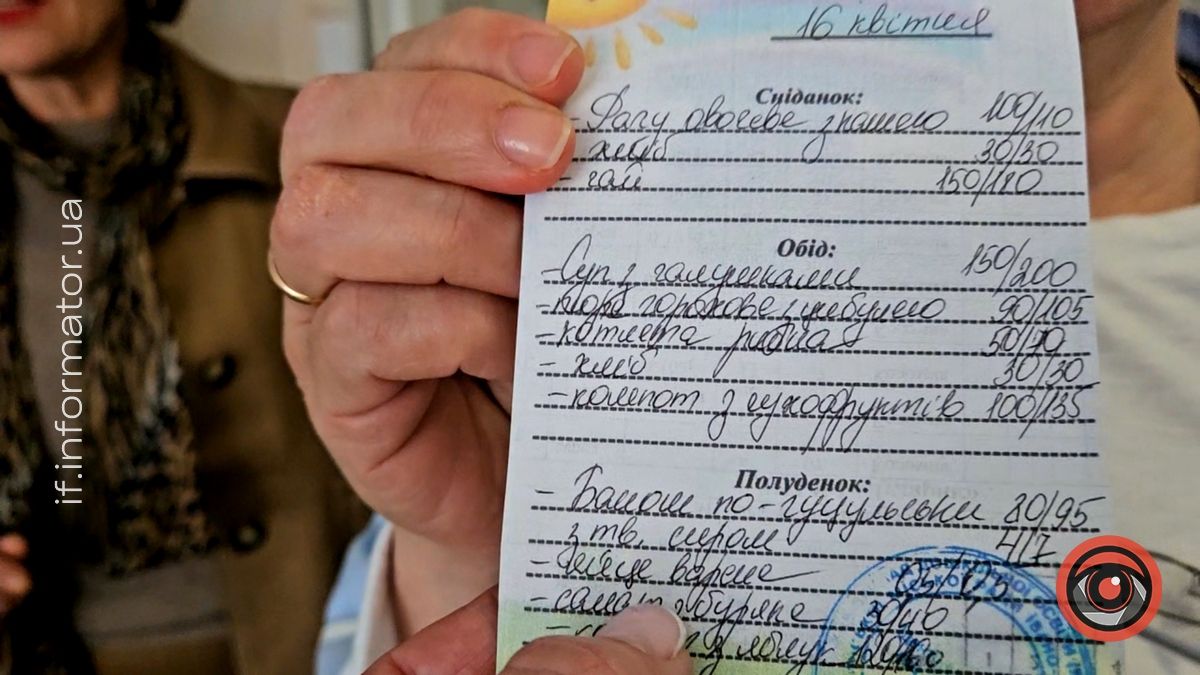 16 квітня
Сніданок:
- Рагу овочеве з 100/10
- хліб 30/30
- чай 150/180
Обід:
- Суп з галушками 150/200
- пюре горохове з цибулею 90/105
- котлета рибна 50/70
- хліб 30/30
- компот з сухофруктів 100/135
Полуденок:
- Банош по-гуцульськи 80/95
з тв. сиром 4/7
- яйце варене 0,5/0,5
- салат з буряка 30/40
з яблук
if.informator.ua